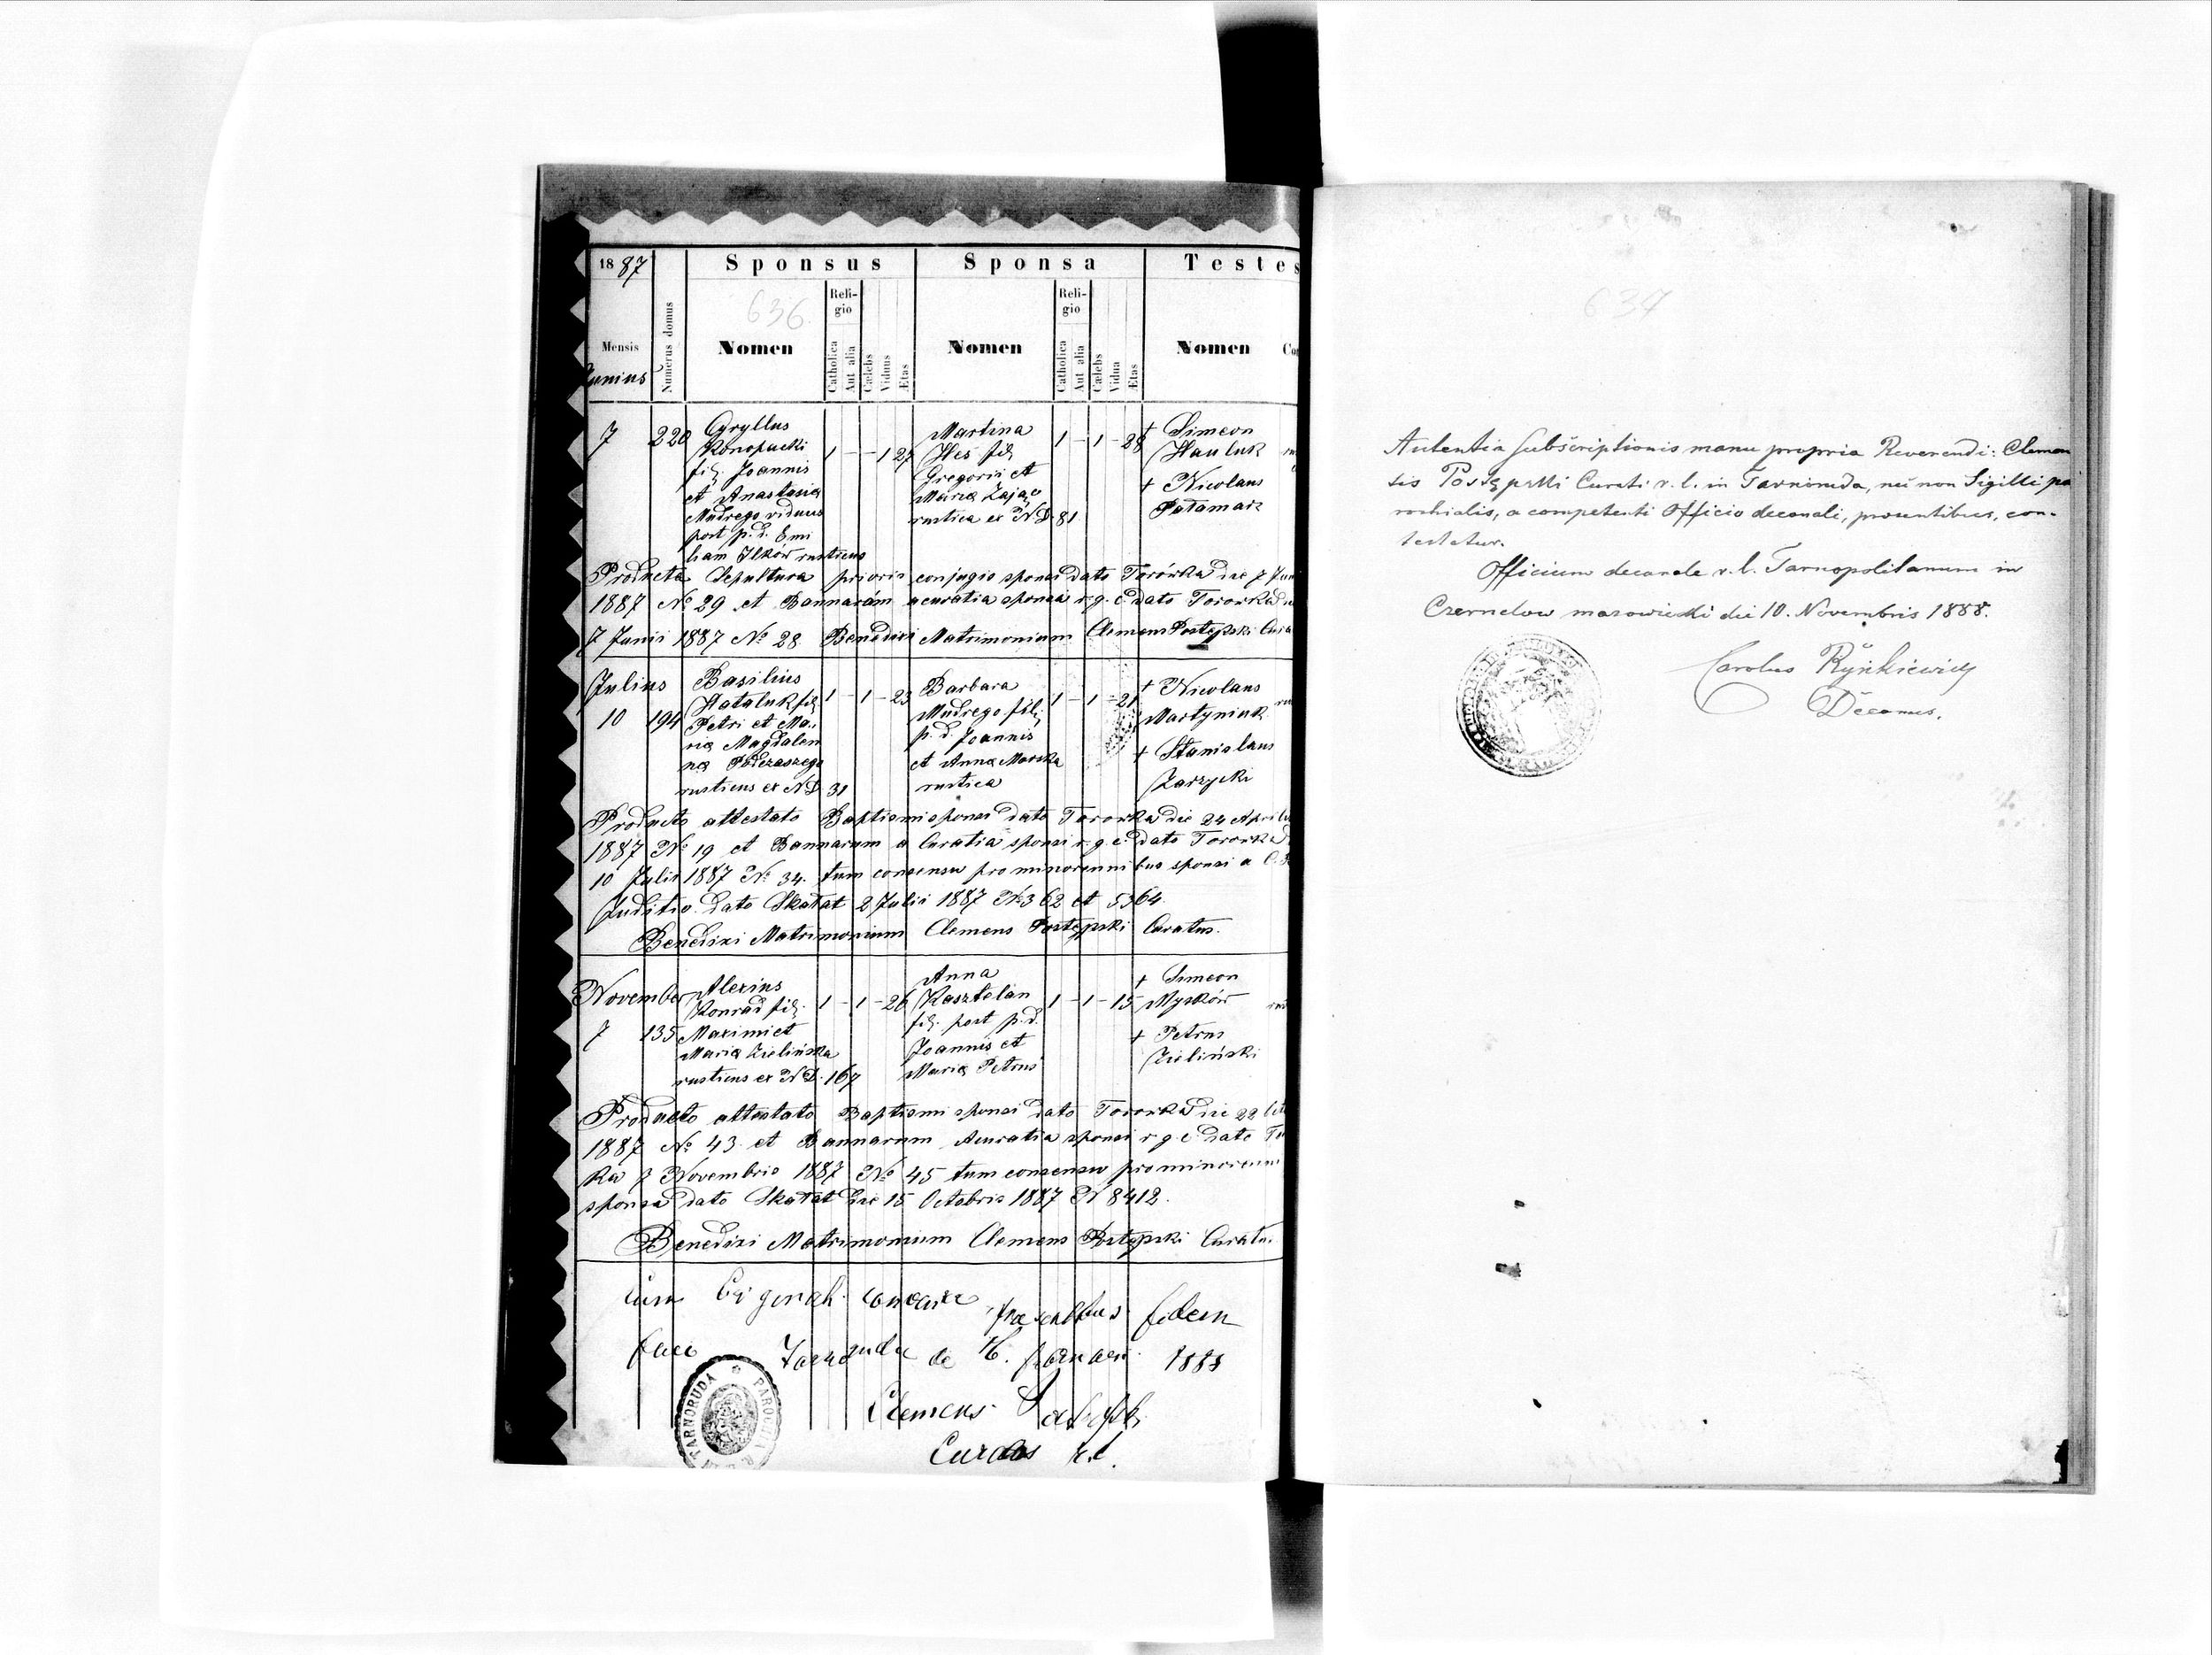 1887
Sponsus
Sponsa
Testes
636
Religio
Religio
Mensis
Junius
Numerus domus
Nomen
Catholica
Aut alia
Cælebs
Viduus
Ætas
Nomen
Catholica
Aut alia
Cælebs
Vidua
Ætas
Nomen
7 220 Cyryllus
Konopacki
filj Joannis
et Anastasiæ
Mudrego viduus
post p.d. Emi
liam Ilków rusticus
1 – – 1 27
Martina
Hes filj
Gregorii et
Mariæ Zając
rustica ex ND. 81
1 – 1 – 28
† Simeon
Hauluk
† Nicolaus
Patamar
Producta Sepultura prioris conjugis sponsi dato Torówka die 7 Juni
1887 No 29 et Bannarám a curatia sponsi r.g.c. dato Torowka
7 Junii 1887 No 28 Benedixi Matrimonium Clemens Postępski Cura
Julius
10 194
Basilius
Hataluk filj
Petri et Ma-
riæ Magdalen
næ Podczaszego
rusticus ex ND 31
1 – 1 – 23
Barbara
Mudrego filj
p.d. Joannis
et Annæ Morska
rustica
1 – 1 – 21
† Nicolaus
Martyniuk
† Stanislaus
Zarzycki
Producto attestato Baptismi sponsi dato Torowka die 24 Aprilis
1887 No 19 et Bannarum a Curatia sponsi r.g.c. dato Torowka
10 Julii 1887 No 34. tum consensu pro minorennibus sponsi a C.
Juditio dato Skałat 2 Julii 1887 No 362 et 5364.
Benedixi Matrimonium Clemens Postępski Curatus.
November
7 135
Alexius
Konrad filj.
Maximi et
Mariæ Zielińska
rusticus ex ND. 167
1 – 1 – 26
Anna
Kasztelan
filj. post p.d.
Joannis et
Mariæ Petrus
1 – 1 – 15
† Simeon
Myrków
† Petrus
Zieliński
Producto attestato Baptismi sponsi dato Torowka die 22
1887 No 43 et Bannarum Acuratia sponsi r.g.c. dato To
ka 7 Novembris 1887 No 45 tum consensu pro minorenni
sponsa dato Skałat die 15 Octobris 1887 N 8412.
Benedixi Matrimonium Clemens Postępski Curatu.
Cum Originali concordare præsentibus fidem
facio Tarnoruda de 16. Januarii 1888
Clemens Postępski
Curatus r.l.
TARNORUDA PAROCHIA
634
Autentia subscriptionis manu propria Reverendi: Clemen
tis Postępski Curati r.l. in Tarnoruda, nec non Sigilli pa
rochialis, a competenti Officio decanali, præsentibus, con-
testatur.
Officium decanale r.l. Tarnopolitanum in
Czernelow mazowiecki die 10. Novembris 1888.
Carolus Rynkiewicz
Decanus.